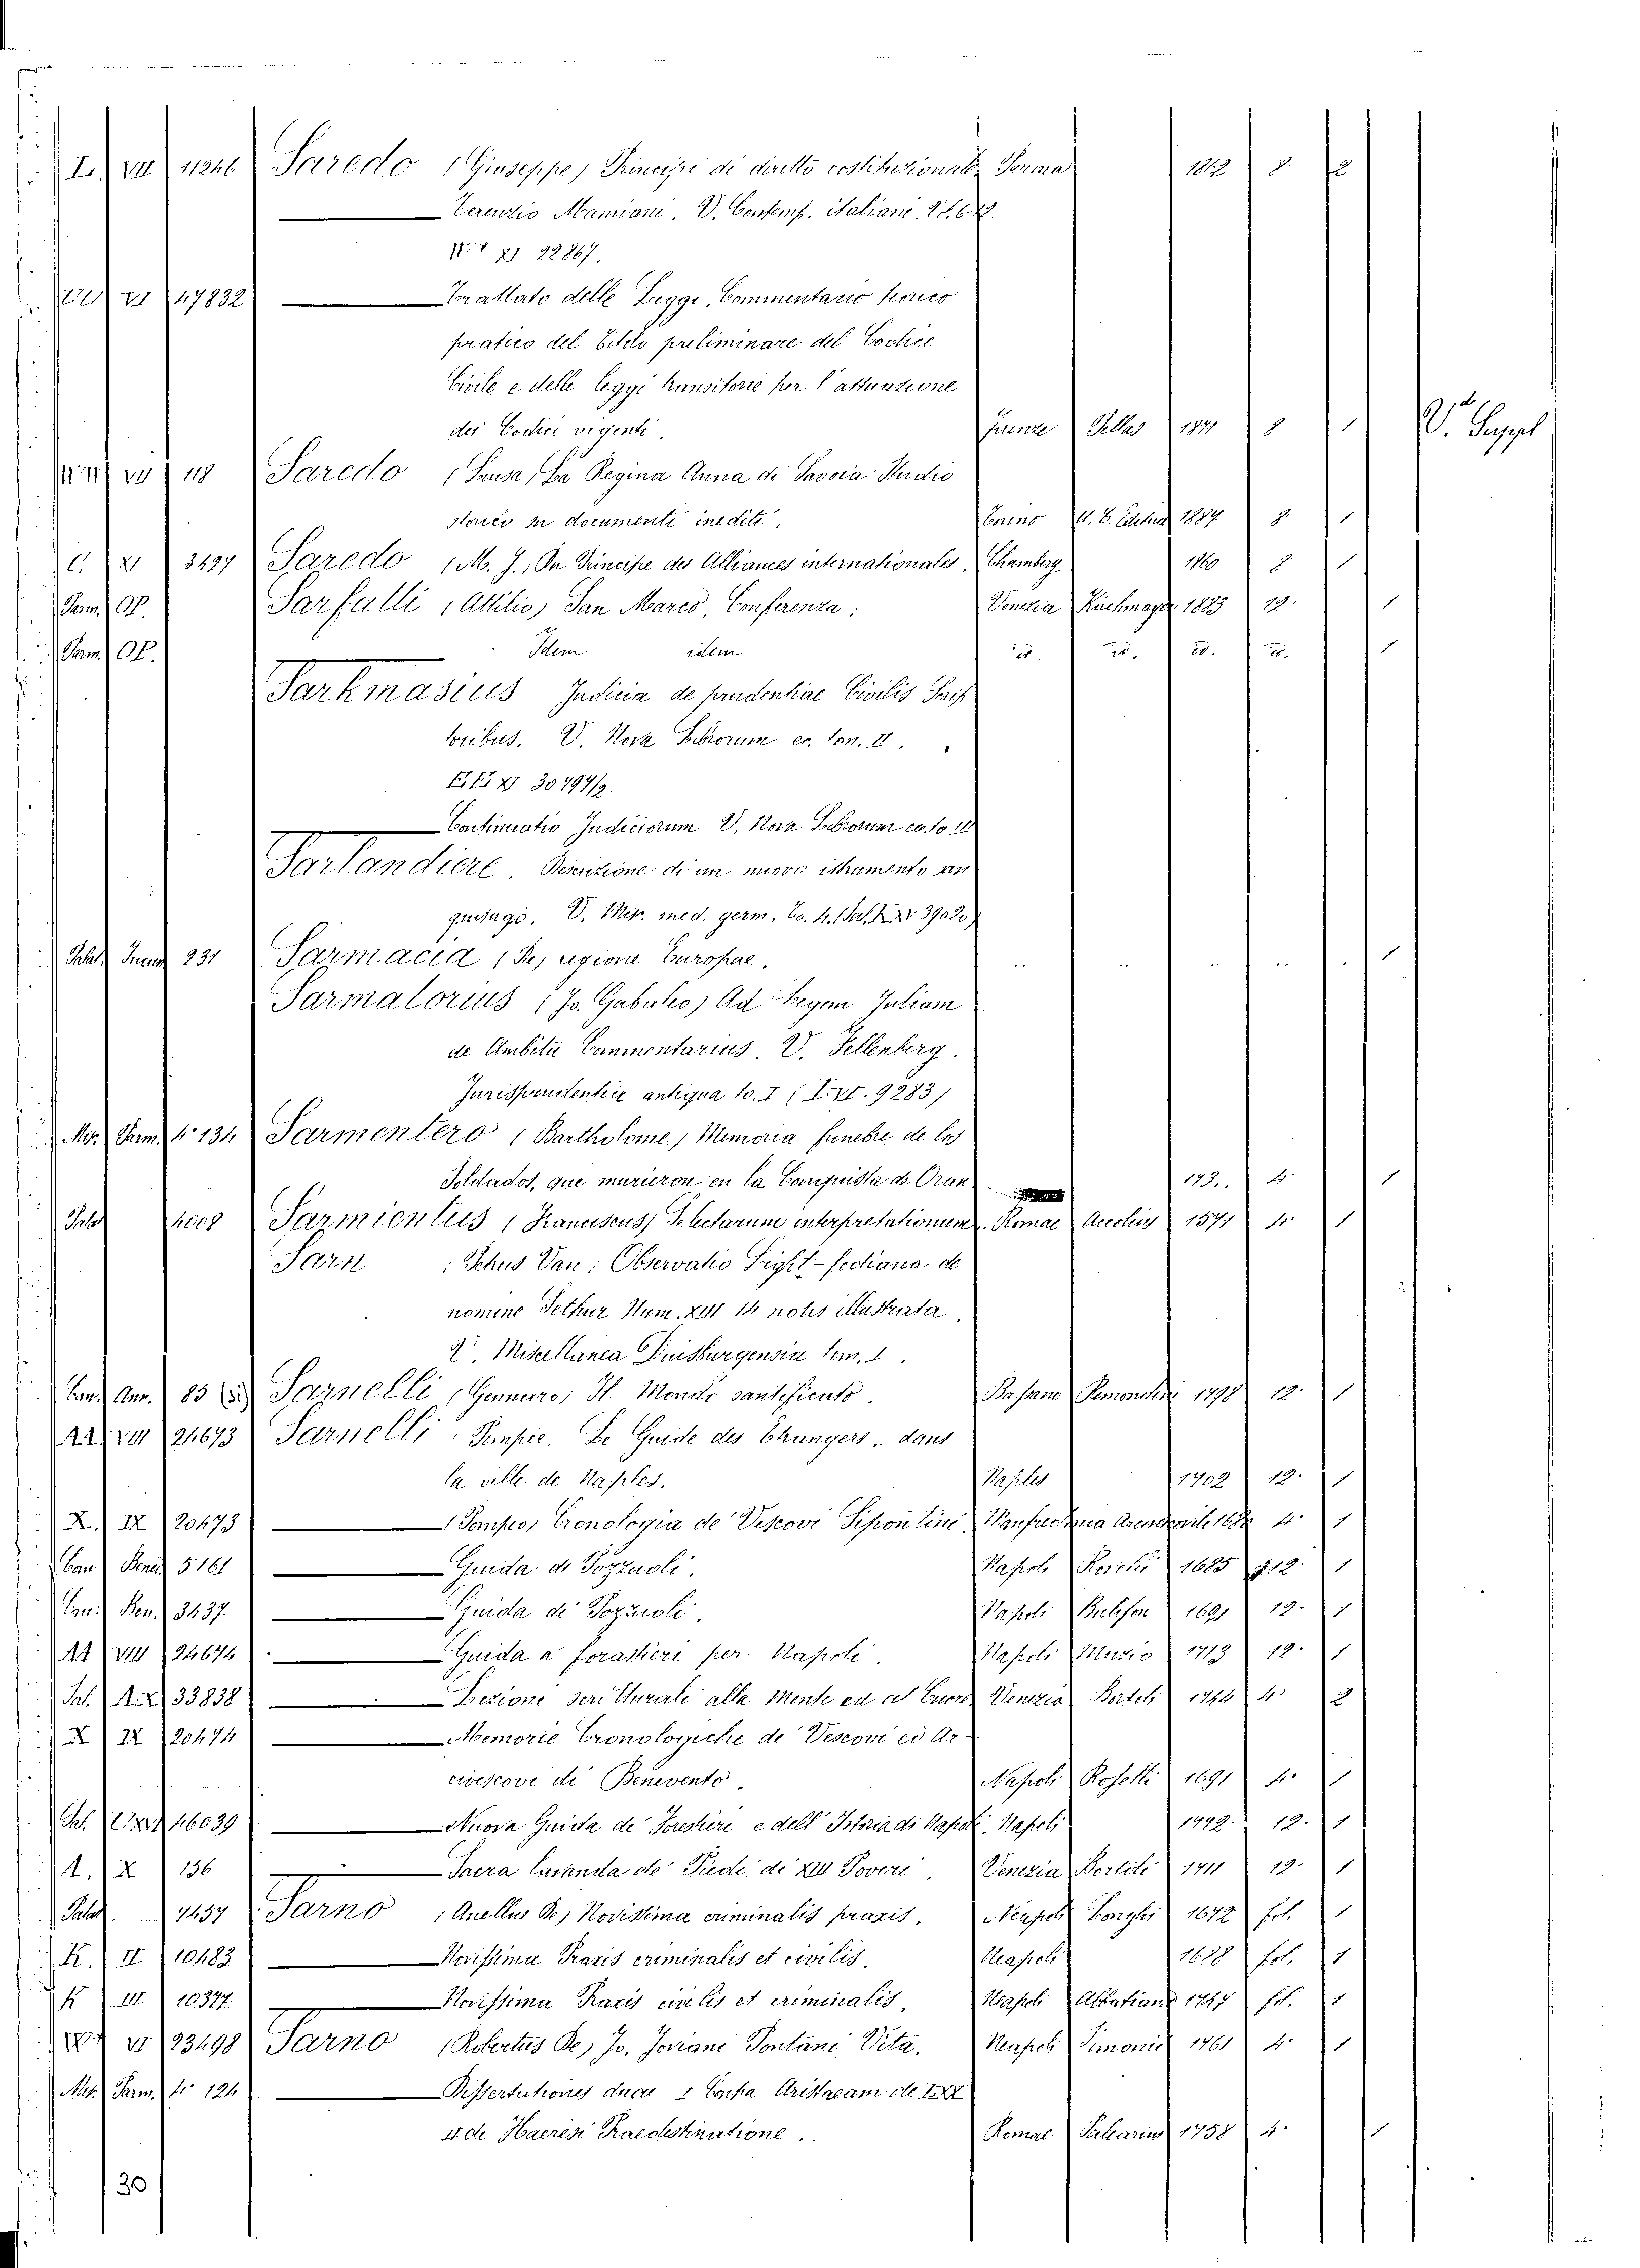 I. VIII 11246 Saredo (Giuseppe) Principi di diritto costituzionale Parma 1862 8 2
Terenzio Mamiani. V. Contemp. italiani.
22867.
VI 47832 Trattato delle Leggi, Commentario teorico
pratico del Titolo preliminare del Codice
Civile e delle leggi transitorie per l'attuazione
dei Codici vigenti. Firenze Pellas 1871 8 1 V. Suppl
VII 118 Saredo (Luisa) La Regina Anna di Savoia Studio
storico su documenti inediti. Torino 1887 8 1
C. XI 3427 Saredo (M. J.) Du Principe des Alliances internationales. Chambery 1860 8 1
Parm. OP. Sarfatti (Attilio) San Marco, Conferenza. Venezia Kirchmayer 1893 12. 1
Parm. OP. Idem idem id. id. id. id. 1
Sarkmasius Judicia de prudentiae Civilis Scrip
toribus. V. Nova Librorum ec. tom. II.
XI 30797/2.
Continuatio Judiciorum V. Nova Librorum ec. to II
Sarlandiere. Descrizione di un nuovo istrumento
V. Mis. med. germ. to. 4. 39020)
Palat. 231 Sarmacia (De) regione Europae. 1
Sarmatorius (Jo. Gabaleo) Ad Legem Juliam
de Ambitu Commentarius. V. Fellenberg.
Jurisprudentia antiqua to. I (I. VI. 9283)
Parm. 4° 134 Sarmentero (Bartholome) Memoria funebre de los
Soldados, que murieron en la Conquista de Oran 173.. 4. 1
Palat 4008 Sarmientus (Franciscus) Selectarum interpretationum. Romae Accoltus 1571 4. 1
Sarn (Schus Van) Observatio
nomine Sethur Num. XIII 14 notis illustrata.
V. Miscellanea Duisburgensia tom. I.
Ann. 85 Sarnelli (Gennaro) Il Mondo santificato. Bassano Remondini 1798 12. 1
AA VIII 24673 Sarnelli (Pompée) Le Guide des Etrangers.. dans
la ville de Naples. Naples 1702 12. 1
X. IX 20473 (Pompeo) Cronologia de' Vescovi Sipontini Manfredonia 4. 1
Ben. 5161 Guida di Pozzuoli. Napoli Roselli 1685 12. 1
Ben. 3437 Guida di Pozzuoli. Napoli Bulifon 1691 12. 1
AA VIII 24674 Guida a' forastieri per Napoli. Napoli Muzio 1713 12. 1
33838 Lezioni scritturali alla mente ed al cuore Venezia Bortoli 1744 4. 2
X IX 20474 Memorie Cronologiche de' Vescovi ed Ar-
civescovi di Benevento. Napoli Roselli 1691 4. 1
16039 Nuova Guida de' Forestieri e dell' Istoria di Napoli. Napoli 1772. 12. 1
A. X 136 Sacra lavanda de' Piedi di XIII Poveri. Venezia Bortoli 1711 12. 1
Palat 7457 Sarno (Anellus De) Novissima criminalis praxis. Neapoli Longhi 1672 fol. 1
K. II 10483 Novissima Praxis criminalis et civilis. Neapoli 1688 fol. 1
K III 10377 Novissima Praxis civilis et criminalis. Neapoli Abbatiano 1747 fol. 1
VI 23498 Sarno (Robertus De) Jo. Joviani Pontani Vita. Neapoli Simonii 1761 4. 1
Parm. 4° 124 Dissertationes duae I Contra Aristaeam de LXX
II de Haeresi Praedestinatione.. Romae Salvarius 1758 4. 1
30